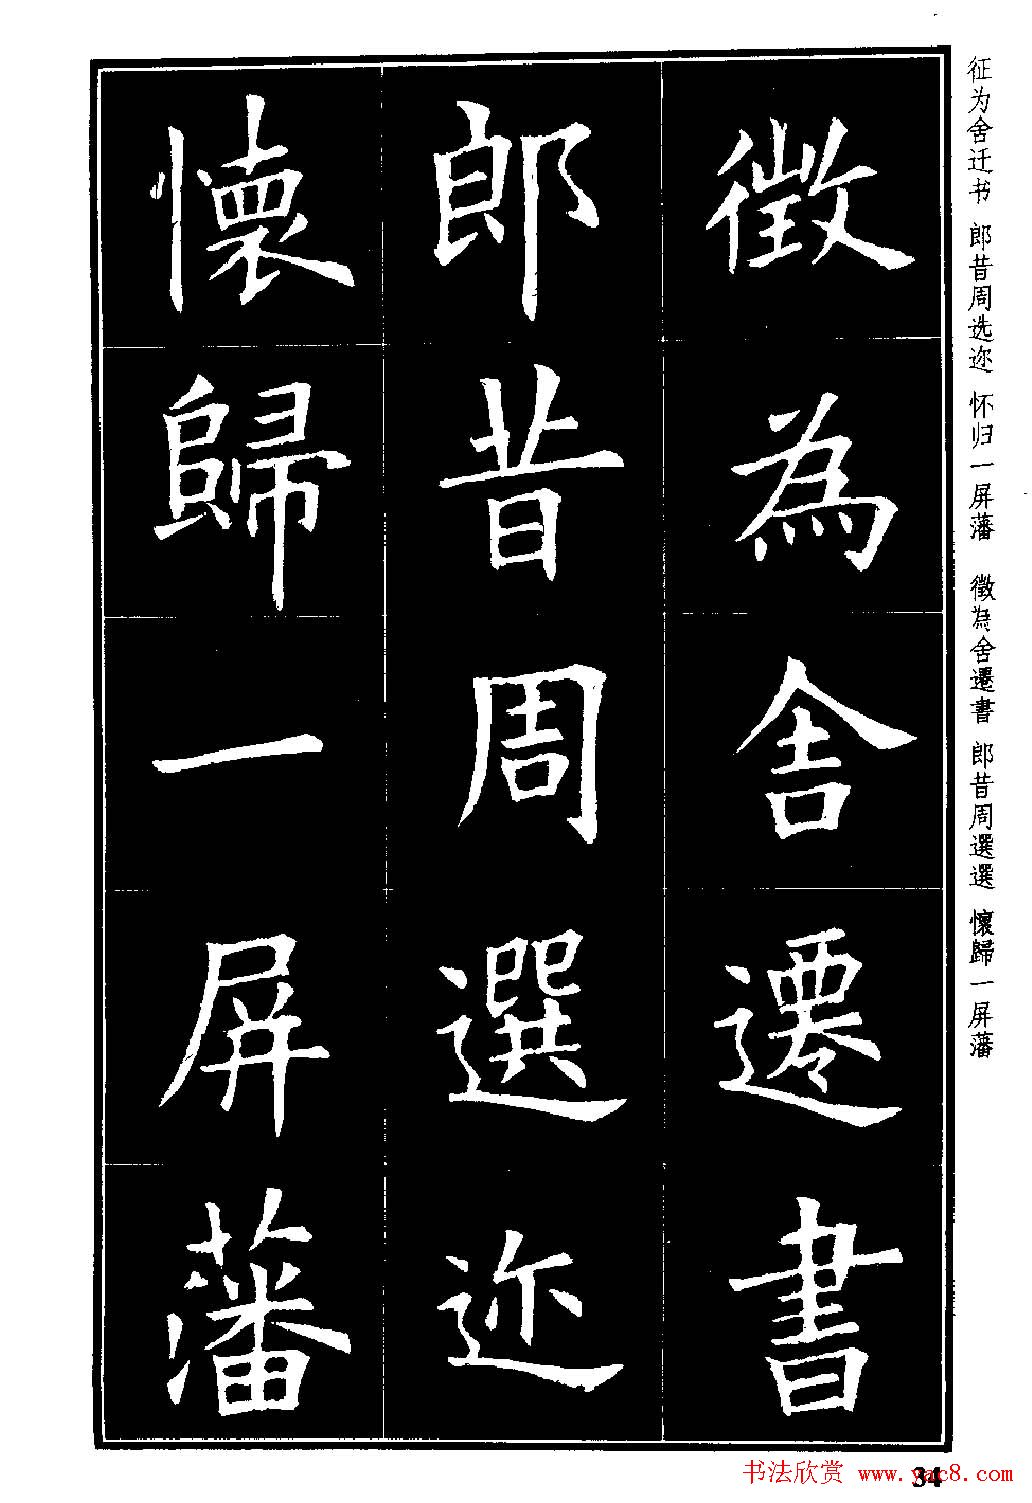 徵為舍遷書
郎昔周選迩
懷歸一屏藩
征为舍迁书 郎昔周选迩 怀归一屏藩 徵為舍遷書 郎昔周選選 懷歸一屏藩
34
书法欣赏 www.yac8.com